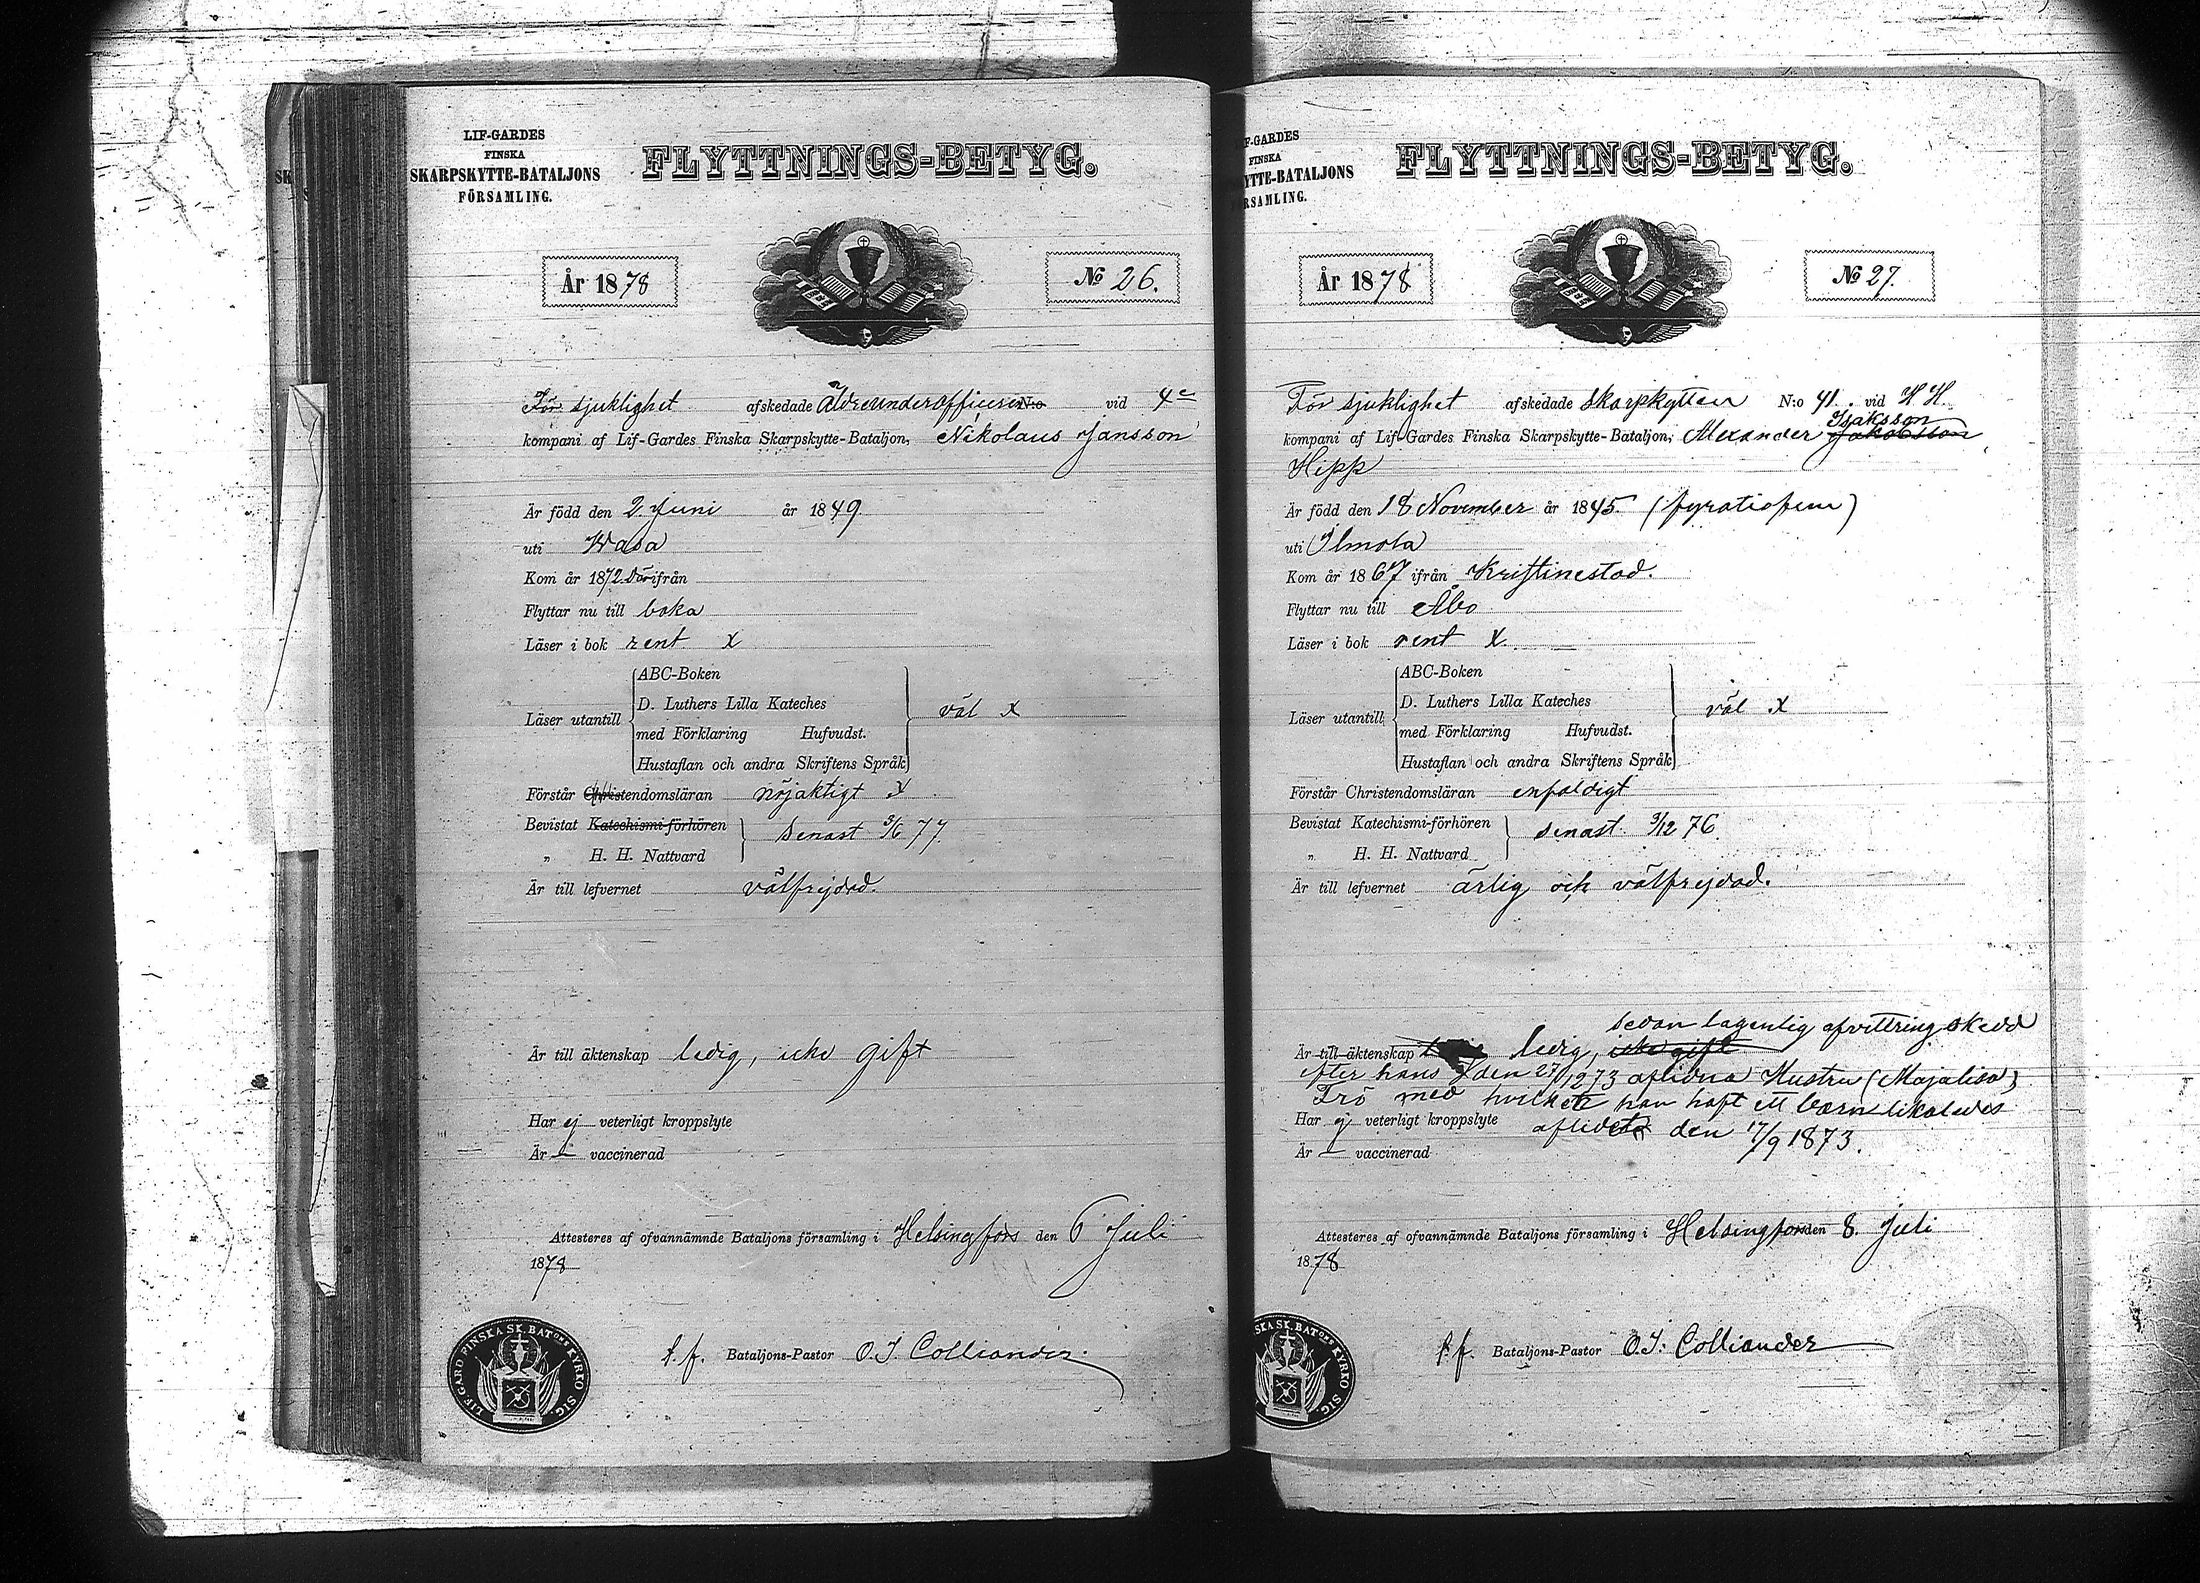 LIF-GARDES
FINSKA
SKARPSKYTTE-BATALJONS
FÖRSAMLING.
FLYTTNINGS-BETYG.
År 1878
No 26.
För sjuklighet afskedade Äldreunderofficeren N:o vid 4e
kompani af Lif-Gardes Finska Skarpskytte-Bataljon, Nikolaus Jansson
Är född den 2 Juni år 1849.
uti Wasa
Kom år 1872 Därifrån
Flyttar nu till baka
Läser i bok rent x
Läser utantill
ABC-Boken
D. Luthers Lilla Kateches
med Förklaring Hufvudst.
Hustaflan och andra Skriftens Språk
väl x
Förstår Christendomsläran nöjaktigt x
Bevistat Katechismi-förhören
„ H. H. Nattvard
senast 3/6 77.
Är till lefvernet välfrejdad.
Är till äktenskap ledig, icke gift
Har ej veterligt kroppslyte
Är – vaccinerad
Attesteres af ofvannämnde Bataljons församling i Helsingfors den 6 Juli
1878
LIF. GARD FINSKA SK. BATONS KYRKO SIG.
t. f. Bataljons-Pastor O. I. Colliander.
F-GARDES
FINSKA
YTTE-BATALJONS
RSAMLING.
FLYTTNINGS-BETYG.
År 1878
No 27.
För sjuklighet afskedade Skarpskytten N:o 41. vid H H.
Isaksson
kompani af Lif-Gardes Finska Skarpskytte-Bataljon, Alexander Jakobsson
Hipp
Är född den 18 November år 1845 (fyratiofem)
uti Ilmola
Kom år 1867 ifrån Kristinestad.
Flyttar nu till Åbo
Läser i bok rent x.
Läser utantill
ABC-Boken
D. Luthers Lilla Kateches
med Förklaring Hufvudst.
Hustaflan och andra Skriftens Språk
väl x
Förstår Christendomsläran enfaldigt
Bevistat Katechismi-förhören
„ H. H. Nattvard
senast 3/12 76
Är till lefvernet ärlig och välfrejdad.
sedan lagenlig afvittring skedd
Är till äktenskap ledig, icke gift
efter hans den 27/12 73 aflidna Hustru (Majalisa)
Frö med hvilken han haft ett barn likaledes
Har ej veterligt kroppslyte aflidet den 17/9 1873.
Är – vaccinerad
Attesteres af ofvannämnde Bataljons församling i Helsingfors den 8. Juli
1878
SKA SK. BATONS KYRKO SIG.
t. f. Bataljons-Pastor O. I. Colliander